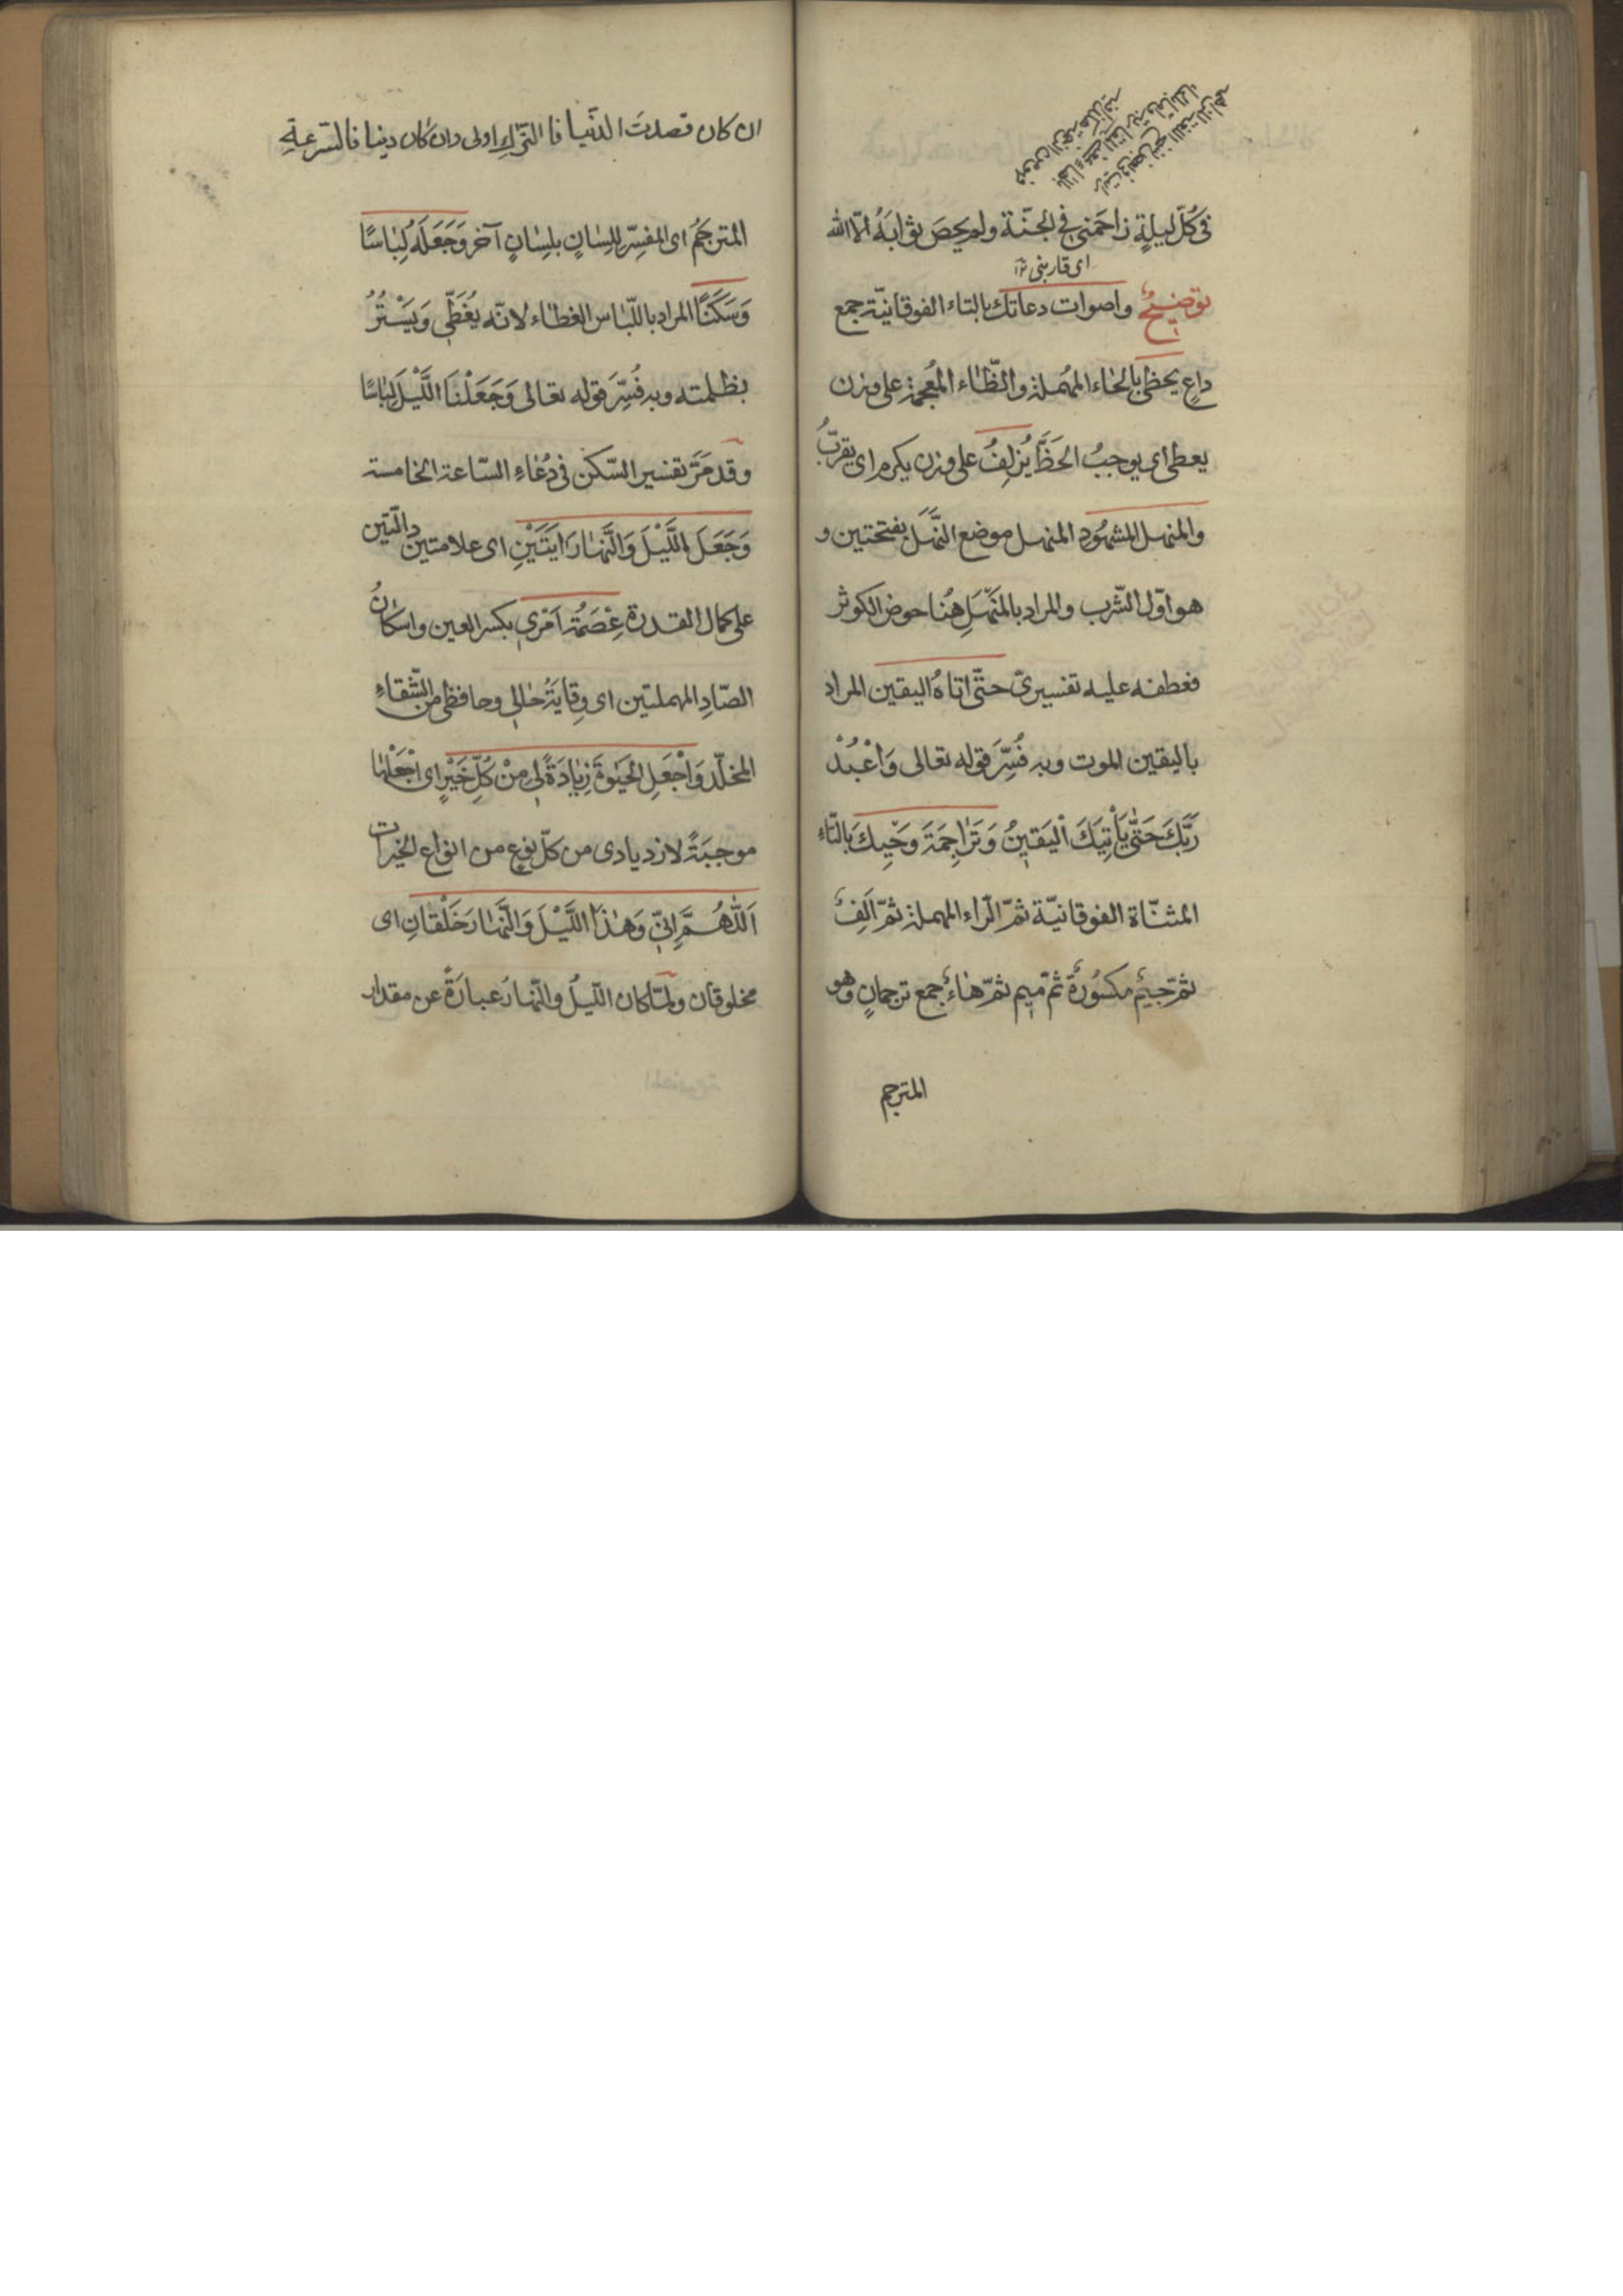 في كُلّ ليلةٍ زاحَمَني في الجنّة ولم يحصَ ثوابَهُ الّا الله
اى قاربنى
توضيحٌ واصوات دعاتك بالتاء الفوقانيّة جمع
داعٍ يحظى بالحاء المهملة والظّاء المُعجمة على وزن
يعطى اى يوجبُ الحَظَّ يُزلِفُ على وزن يكرم اى يقرّبُ
والمنهل المشهُود المنهل موضع النَّهَل بفتحتين و
هو اوّل الشّرب والمراد بالمَنْهَلِ هُنا حوض الكوثر
فعطفه عليه تفسيرىّ حتّى اتاهُ اليقين المراد
باليقين الموت وبه فُسِّرَ قوله تعالى وَاعْبُدْ
رَبَّكَ حَتّى يَأْتِيَكَ الْيَقينُ وَتَراجِمَةَ وَحْيِكَ بالتّاء
المثنّاة الفوقانيّة ثمّ الرّاء المهملة ثمّ اَلِفٌ
ثمّ جيمٌ مكسُورةٌ ثمّ ميم ثمّ هاءٌ جمع ترجمانٍ وهو
المترجم
ان كان قصدتَ الدنيا فا اولى وان كان دينا
المترجِمُ اى المفسِّر للِسانٍ بلِسانٍ آخر وَجَعَلَهُ لِباسًا
وَسَكَنًا المراد باللّباس الغطاء لانّه يُغَطّي وَيَسْتُرُ
بظلمته وبه فُسِّرَ قوله تعالى وَجَعَلْنَا اللَّيْلَ لِباسًا
وقد مَرَّ تفسير السّكن في دُعاءِ السّاعة الخامسة
وَجَعَلَ اللَّيْلَ وَالنَّهارَ ايَتَيْنِ اى علامتين دالّتين
على كمال القدرة عِصْمَةُ اَمْري بكسر العين واسكانُ
الصّادِ المهملتين اى وِقايَةُ حالي وحافظى من الشّقاءِ
المخلّد وَاجْعَلِ الحَيوةَ زِيادَةً لي مِنْ كُلِّ خَيْرٍ اى اجْعَلْها
موجبَةً لازديادى من كلّ نوع من انواع الخيرات
اَللّهُمَّ اِنّي وَهذَا اللَّيْلَ وَالنَّهارَ خَلْقانِ اى
مخلوقان ولمّا كان اللّيلُ والنّهارُ عبارةً عن مقدار